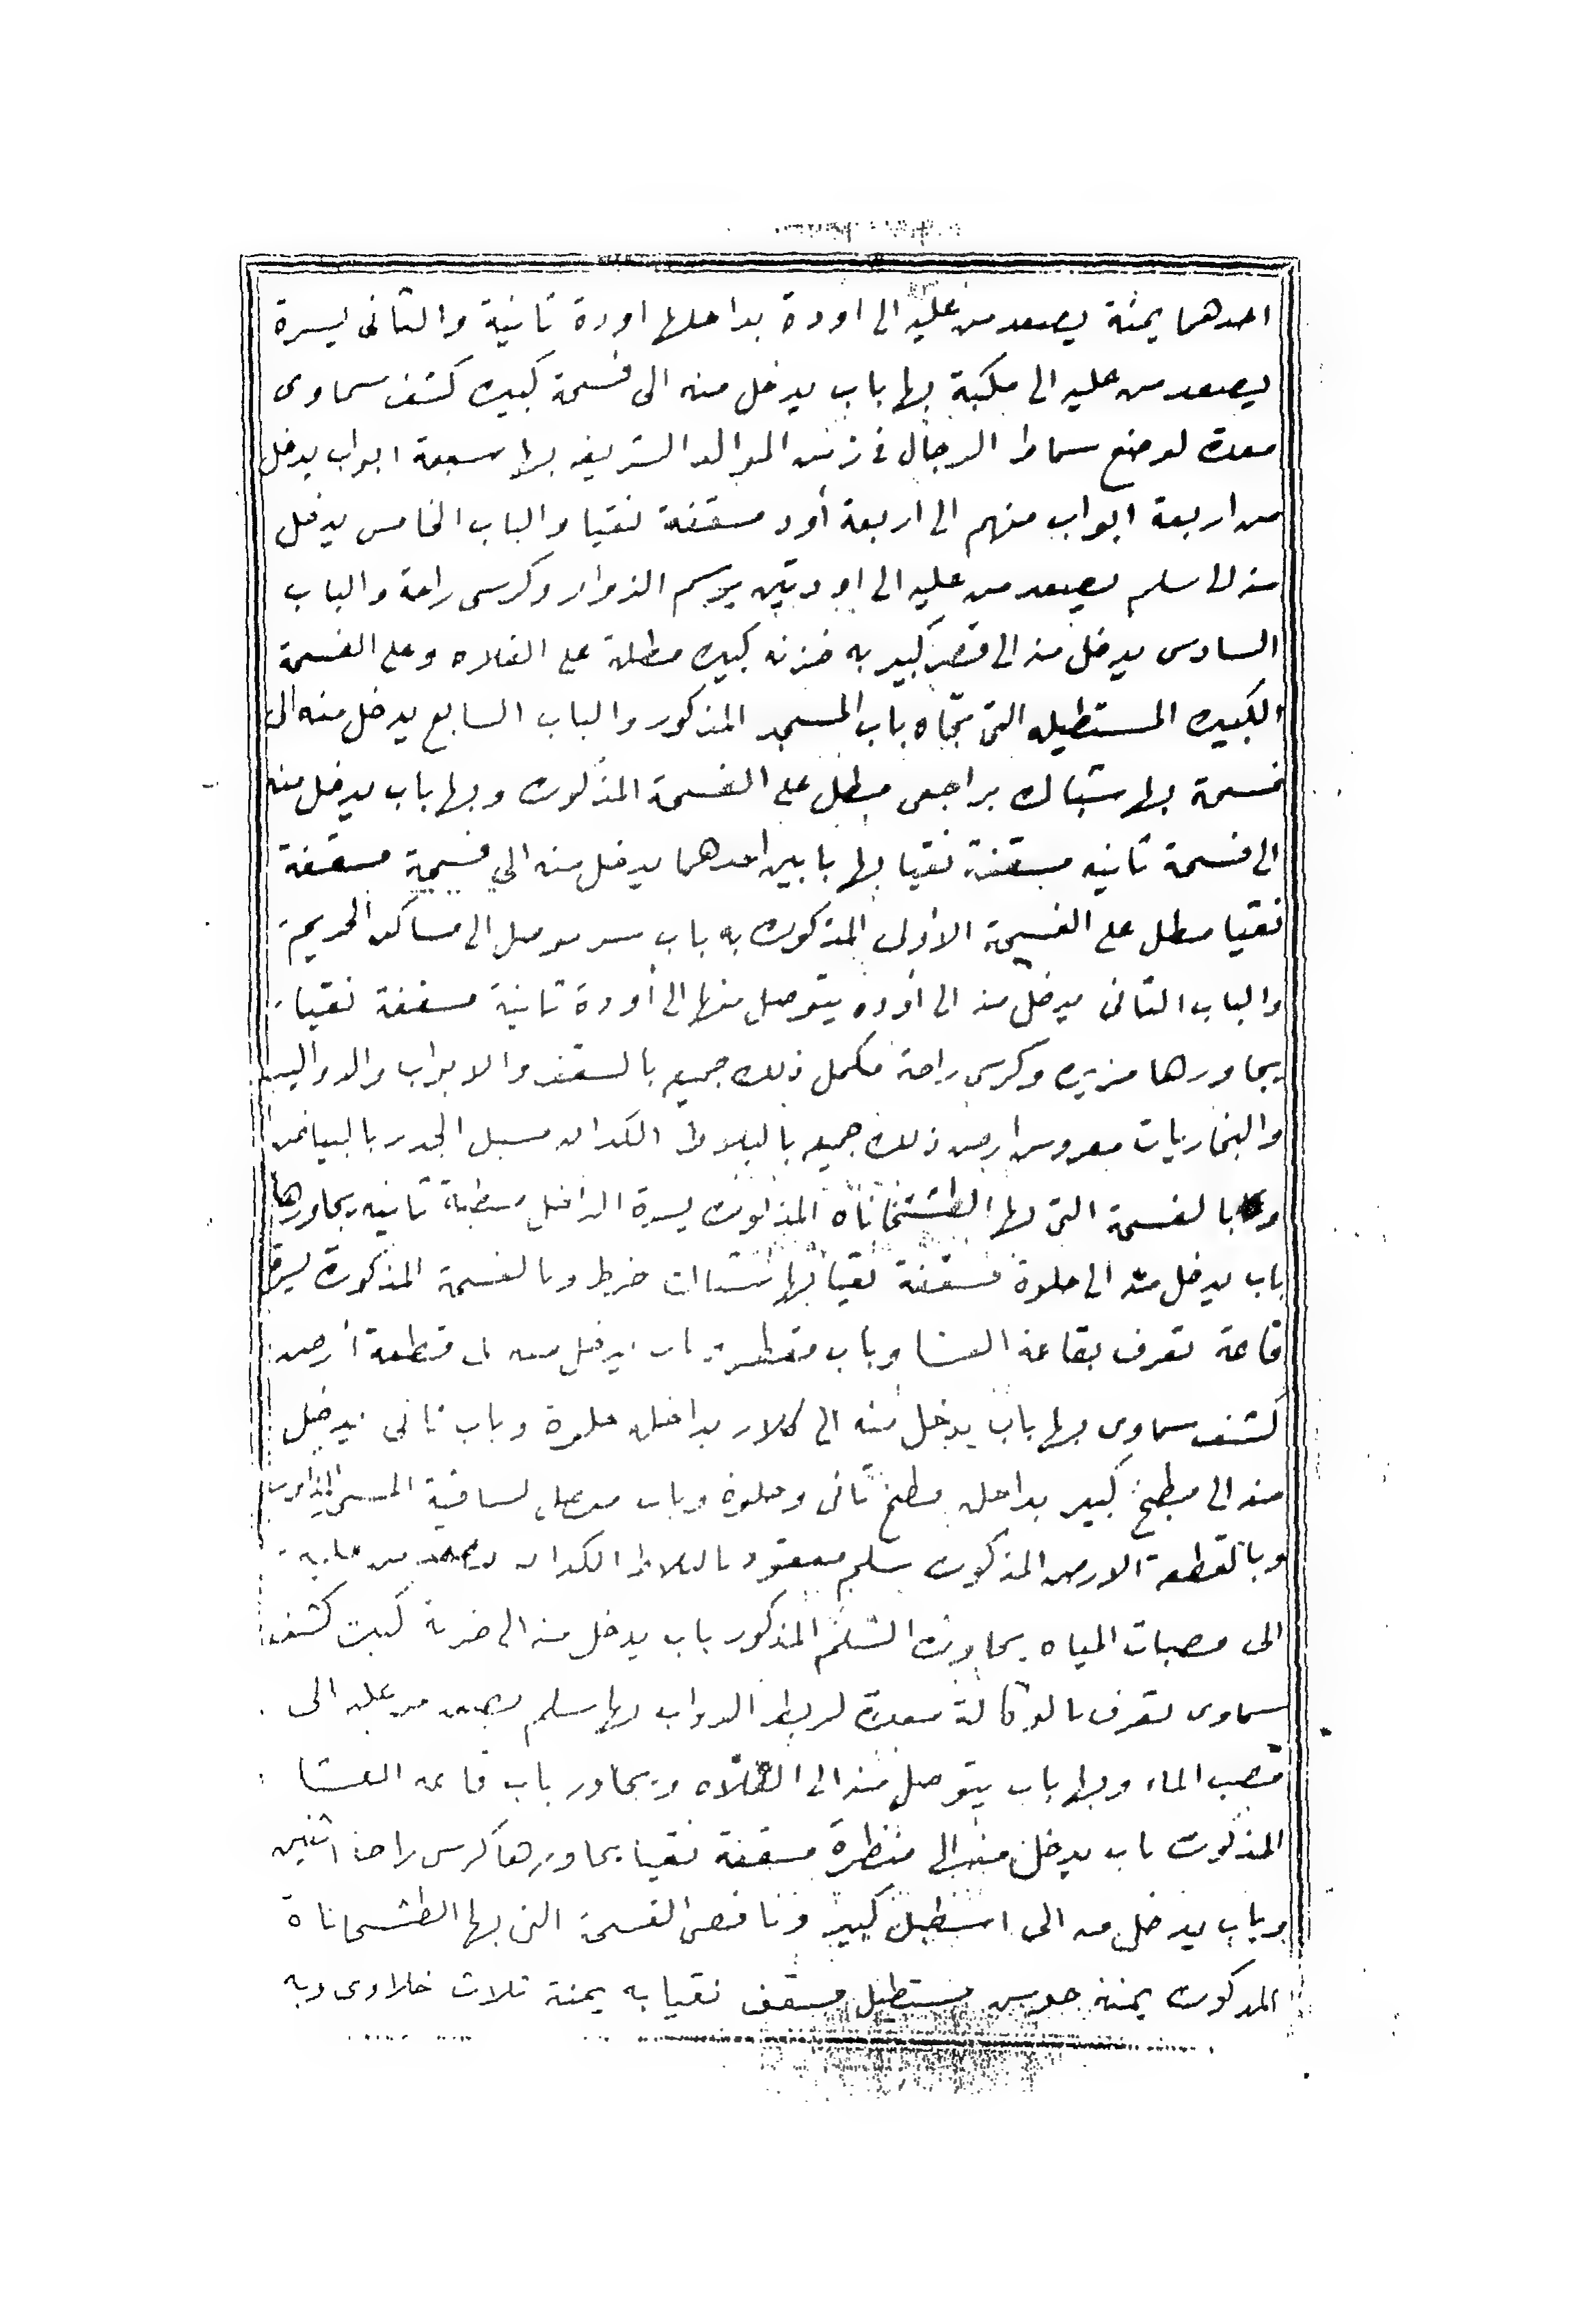 احدهما يمنة يصعد من عليه الى اودة بداخلها اودة ثانية والثانى يسرة
يصعد من عليه الى مكبة بها باب يدخل منه الى فسحة كبيره كشف سماوى
معدة لوضع سماط الرجال فى زمن الموالد الشريفه بها سبعة ابواب يدخل
من اربعة ابواب منهم الى اربعة أود مسقفة نقيا والباب الخامس يدخل
منه الى سلم يصعد من عليه الى اودتين برسم الزوار وكرسى راحة والباب
السادس يدخل منه الى قصر كبير به خزنه كبيره مطلة على الفلاه وعلى الفسحة
الكبيره المستطيله التى تجاه باب المسجد المذكور والباب السابع يدخل منه الى
فسحة بها شباك براجعى مطل على الفسحة المذكوره وبها باب يدخل منه
الى فسحة ثانيه مسقفة نقيا بها بابين احدهما يدخل منه الى فسحة مسقفة
نقيا مطل على الفسحة الاولى المذكوره به باب سر موصل الى مساكن الحريم
والباب الثانى يدخل منه الى أوده يتوصل منها الى أودة ثانية مسقفة نقيا
يجاورها مزيره وكرسى راحة مكمل ذلك جميعه بالسقف والابواب والدواليب
والبخاريات مفروش ارض ذلك جميعه بالبلاط الكدان مسبل الجدر بالبياض
وبالفسحة التى بها الطشتخاناه المذكوره يسرة الداخل مسطبة ثانيه يجاورها
باب يدخل منه الى خلوة مسقفة نقيا بها شباك خرط وبالفسحة المذكورة يسرة
قاعة تعرف بقاعة العشا وباب مقنطر باب يدخل منه الى قطعة أرض
كشف سماوى بها باب يدخل منه الى كلار بداخله خلوة وباب ثانى يدخل
منه الى مطبخ كبير بداخله مطبخ ثانى وخلوة وباب موصل لساقية المذكوره
وبالقطعة الارض المذكوره سلم معقود بالبلاط الكدان يصعد من عليه
الى مصبات المياه يجاوره السلم المذكور باب يدخل منه الى خربة كبيره كشف
سماوى تعرف بالوكالة معدة لربط الدواب بها سلم يصعد من عليه الى
مصب الماء وبها باب يتوصل منه الى الفلاه ويجاور باب قاعة العشا
المذكوره باب يدخل منه الى منظرة مسقفة نقيا يجاورها كرسى راحة اثنين
وباب يدخل منه الى اسطبل كبير وباقصى الفسحة التى بها الطشتخاناة
المذكوره يمنة حوش مستطيل مسقف نقيا به يمنة ثلاث خلاوى وبه